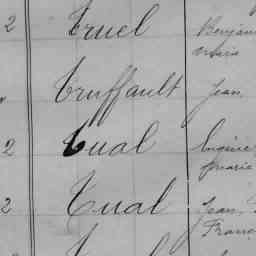 2 Truel Benjam
Marie
" Truffault Jean
2 Tual Eugène
Marie
2 Tual Jean
Franç